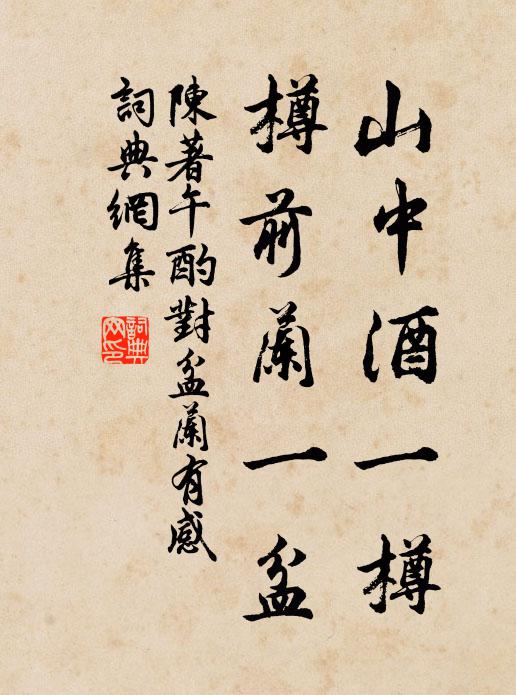 山中酒一樽
樽前蘭一盆
陳著午酌對盆蘭有感
詞典網集
詞典
网印